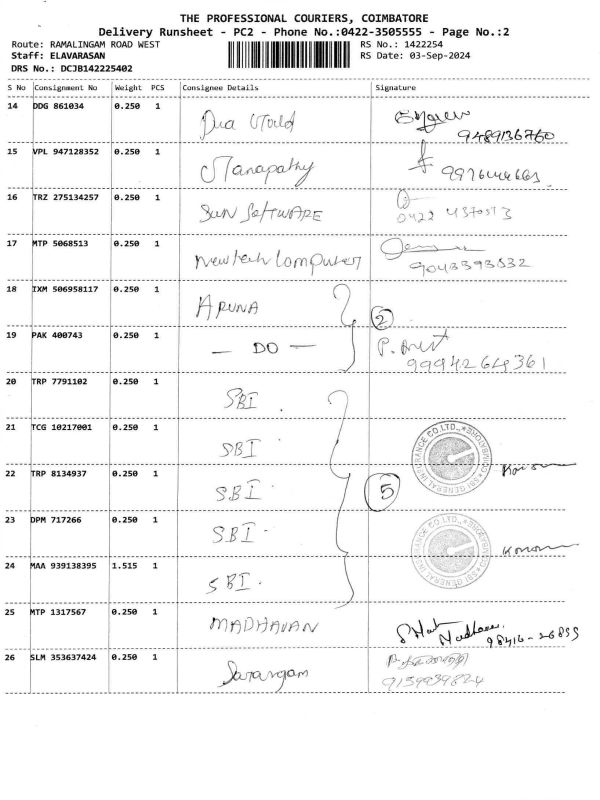 THE PROFESSIONAL COURIERS, COIMBATORE
Delivery Runsheet - PC2 - Phone No.:0422-3505555 - Page No.:2
Route: RAMALINGAM ROAD WEST RS No.: 1422254
Staff: ELAVARASAN RS Date: 03-Sep-2024
DRS No.: DCJB142225402
S No Consignment No Weight PCS Consignee Details Signature
14 DDG 861034 0.250 1
9489136760
15 VPL 947128352 0.250 1 Manapathy
16 TRZ 275134257 0.250 1 SUN SOFTWARE
17 MTP 5068513 0.250 1 Newtech Computer
9043393532
18 IXM 506958117 0.250 1 ARUNA
2
19 PAK 400743 0.250 1 — DO — P.
9994264361
20 TRP 7791102 0.250 1 SBI
21 TCG 10217001 0.250 1 SBI
22 TRP 8134937 0.250 1 SBI 5
23 DPM 717266 0.250 1 SBI
24 MAA 939138395 1.515 1 SBI
SBI GENERAL INSURANCE CO.LTD., * COIMBATORE *
SBI GENERAL INSURANCE CO.LTD., * COIMBATORE *
25 MTP 1317567 0.250 1 MADHAVAN
98416-26855
26 SLM 353637424 0.250 1 Sarangam
9159939824